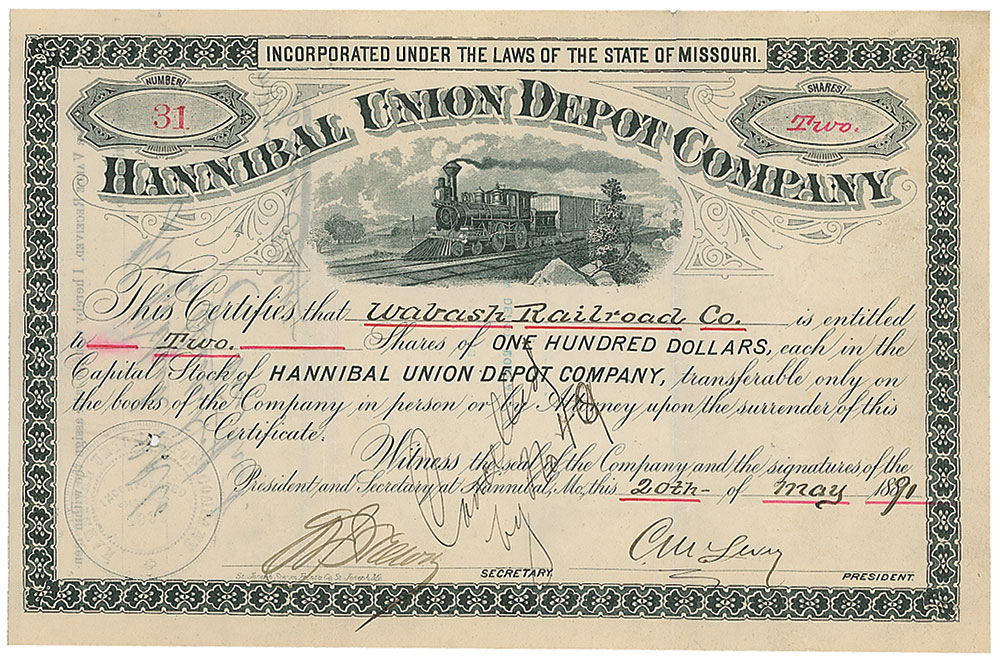 INCORPORATED UNDER THE LAWS OF THE STATE OF MISSOURI.
NUMBER
31
SHARES
Two.
HANNIBAL UNION DEPOT COMPANY
This Certifies that Wabash Railroad Co. is entitled
to Two. Shares of ONE HUNDRED DOLLARS, each in the
Capital Stock of HANNIBAL UNION DEPOT COMPANY, transferable only on
the books of the Company in person or by Attorney upon the surrender of this
Certificate.
Witness the seal of the Company and the signatures of the
President and Secretary at Hannibal, Mo, this 20th of May 1891
by 49
SECRETARY.
PRESIDENT.